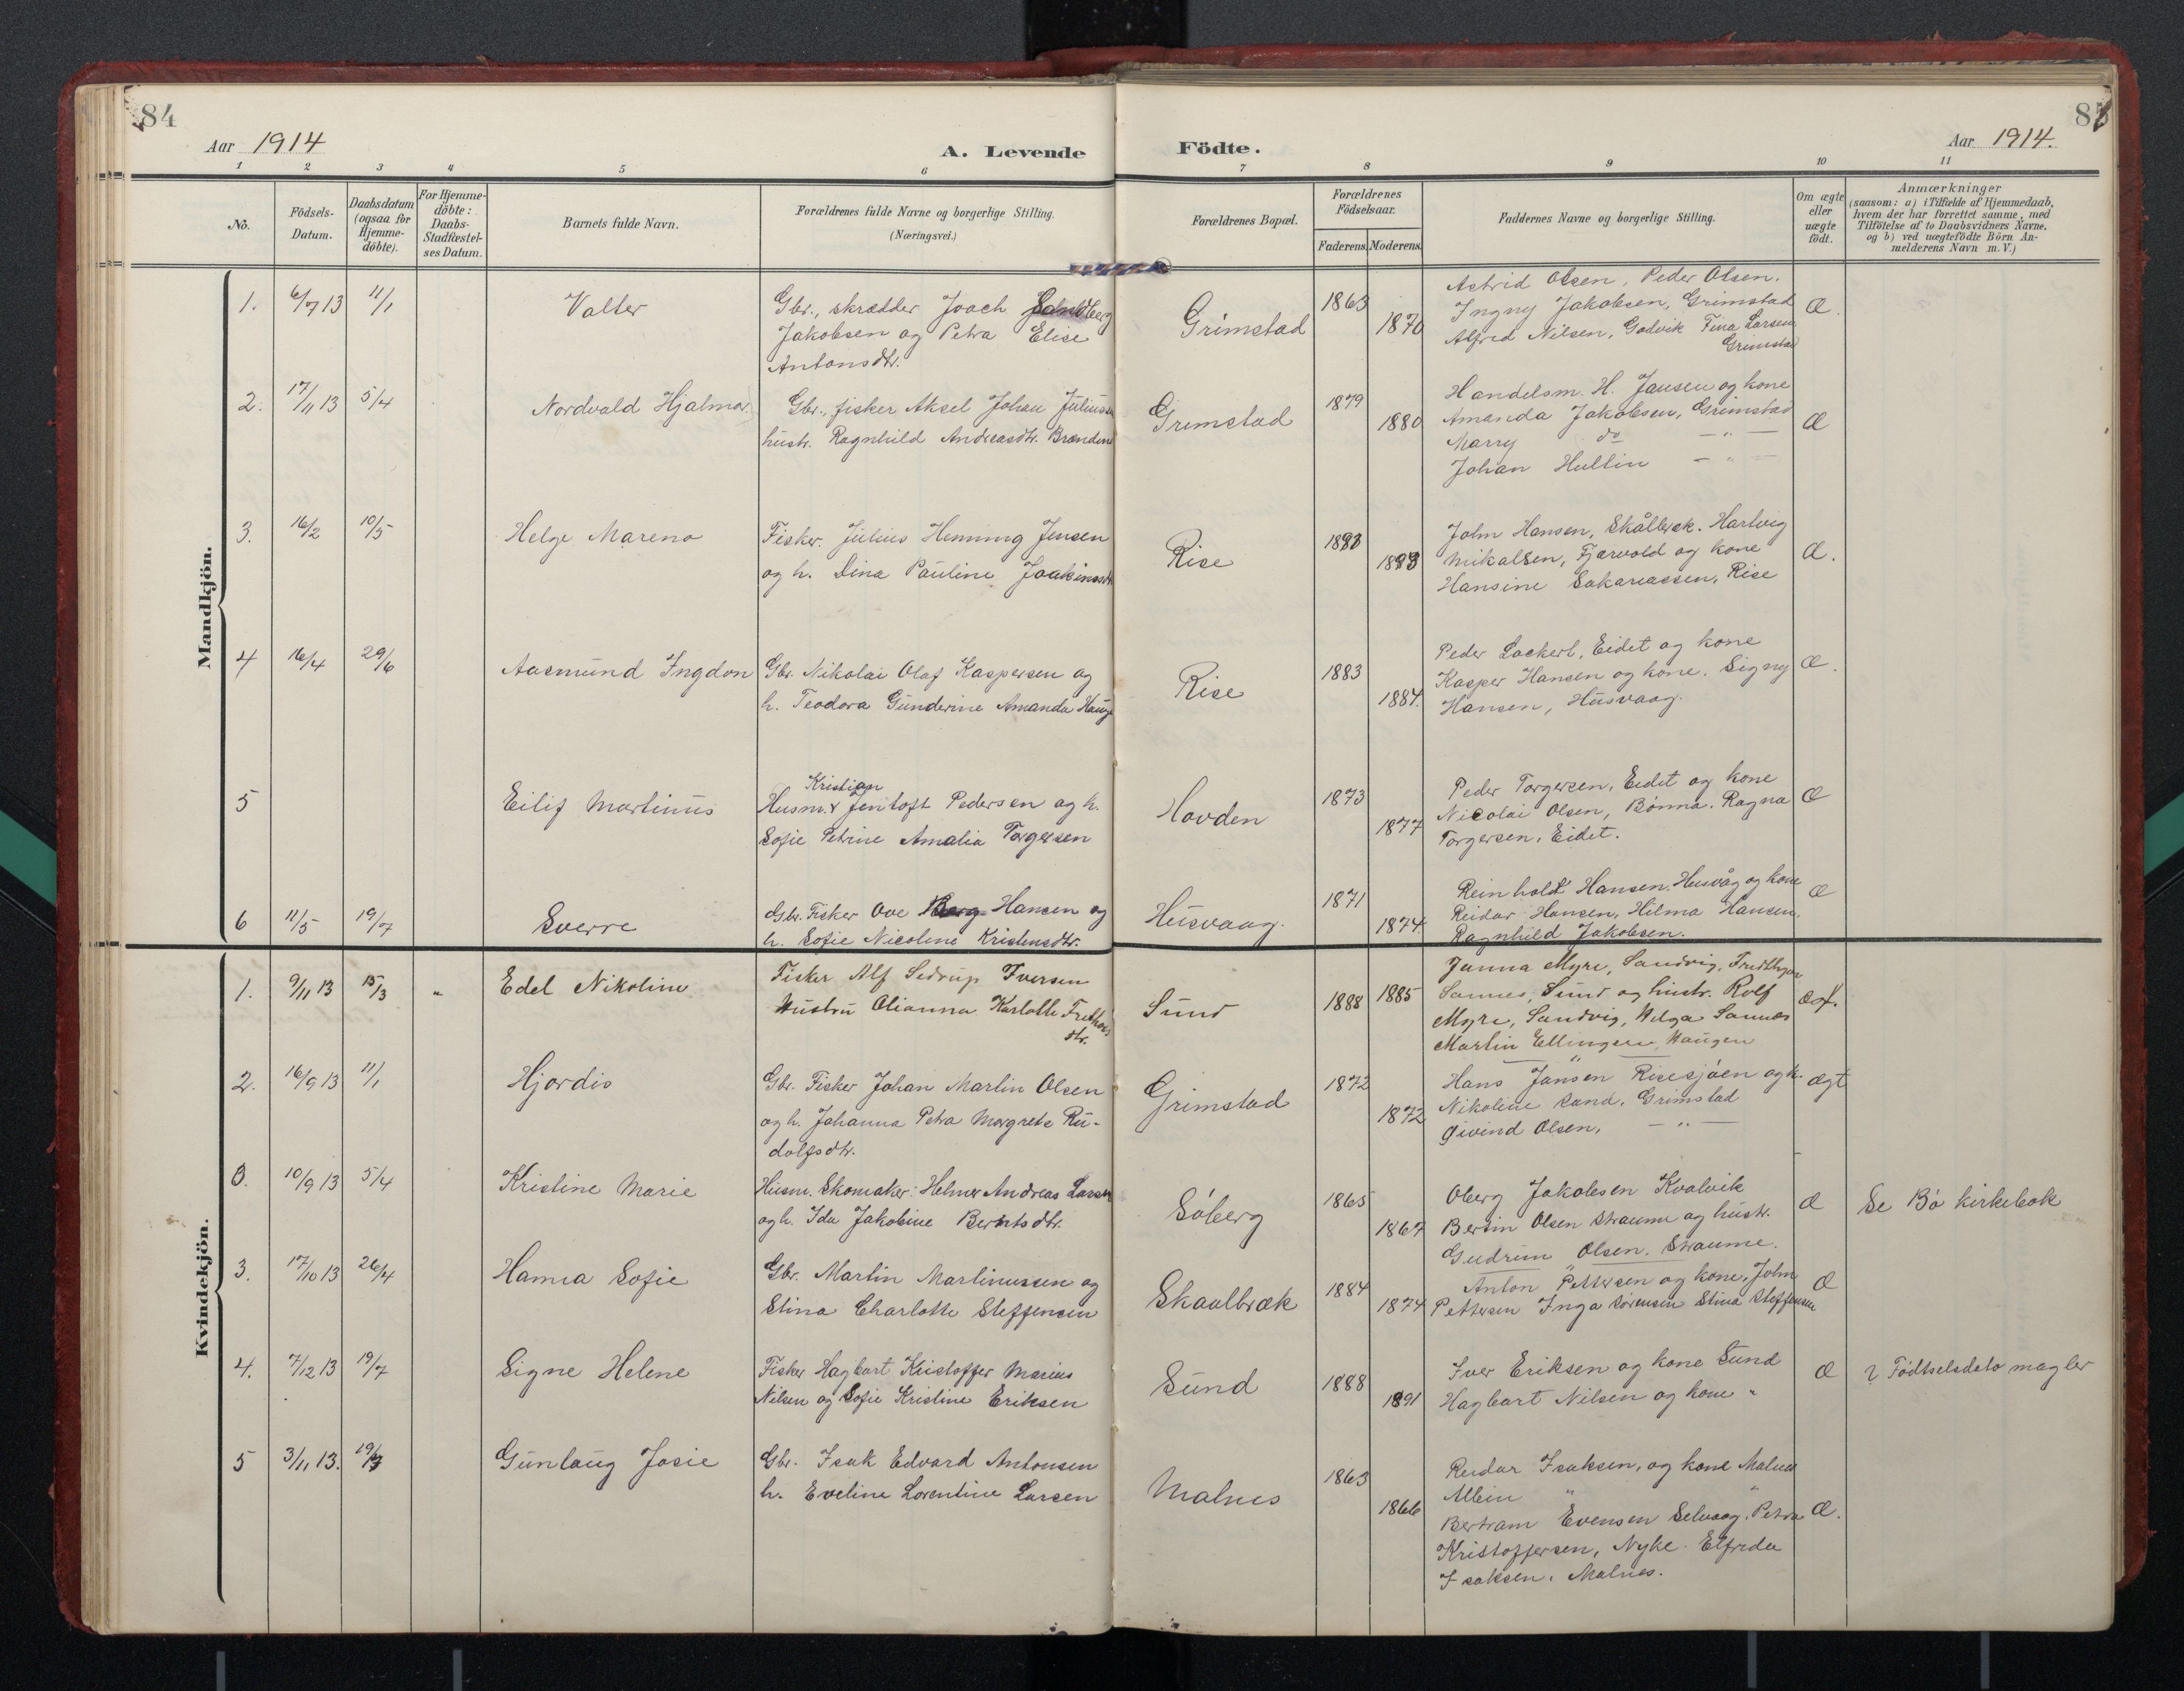 84
Aar 1914
A. Levende
Födte.
Aar 1914.
85
1 2 3 4 5 6 7 8 9 10 11
No.
Födsels-
Datum.
Daabsdatum
(ogsaa for
Hjemme-
döbte).
For Hjemme-
döbte:
Daabs-
Stadfæstel-
ses Datum.
Barnets fulde Navn.
Forældrenes fulde Navne og borgerlige Stilling.
(Næringsvei.)
Forældrenes Bopæl.
Forældrenes
Födselsaar.
Faderens.
Moderens.
Faddernes Navne og borgerlige Stilling.
Om ægte
eller
uægte
födt.
Anmærkninger
(saasom: a) i Tilfælde af Hjemmedaab,
hvem der har forrettet samme, med
Tilföielse af to Daabsvidners Navne,
og b) ved uægtefödte Börn An-
melderens Navn m. V.)
Mandkjön.
1. 6/7 13 11/1
Valter
Gbr., skrædder Joach Sandberg
Jakobsen og Petra Elise
Antonsdtr.
Grimstad
1863
1870
Astrid Olsen, Peder Olsen.
Ingny Jakobsen, Grimstad
Alfred Nilsen, Godvik Fina Larsen
Grimstad
Æ.
2. 17/11 13 5/4
Nordvald Hjalmar
Gbr., fisker Aksel Johan Juliussen
hustr. Ragnhild Andreasdtr. Brænden
Grimstad
1879
1880
Handelsm. H. Jansen og kone
Amanda Jakobsen, Grimstad
Marry do — " —
Johan Hultin — " —
Æ
3. 16/2 10/5
Helge Mareno
Fisker. Julius Henning Jensen
og h. Dina Pauline Joakimsdtr
Rise
John Hansen, Skålbræk. Hartvig
Mikalsen, Fjærvold og kone
Hansine Sakariassen, Rise
Æ.
4 16/4 29/6
Aasmund Ingdon
Gbr. Nikolai Olaf Kaspersen og
h. Teodora Gunderine Amanda Hauge
Rise
1883
1884.
Peder Lockert, Eidet og kone
Kasper Hansen og kone. Signy
Hansen, Husvaag.
Æ.
5
Eilif Martinus
Kristian
Husm. v Jentoft Pedersen og h.
Sofie Petrine Amalia Torgersen
Hovden
1873
1877
Peder Torgersen, Eidet og kone
Nicolai Olsen, Bönna. Ragna
Torgersen, Eidet.
Æ
6 11/5 19/7
Sverre
Gbr. Fisker Ove Hansen og
h. Sofie Nicoline Kristensdtr.
Husvaag.
1871
1874.
Reinholdt Hansen. Husvåg og kone
Reidar Hansen, Hilma Hansen,
Ragnhild Jakobsen.
Æ
Kvindekjön.
1. 9/11 13 15/3 "
Edel Nikoline
Fisker Alf Sedrup Iversen
Hustru Olianna Karlotte Fredthjofs
dtr.
Sund
1888 1885
Janna Myre, Sandvig, Fredthjov
Sannes, Sund og hustr. Rolf
Myre, Sandvig, Helga Sannes
Martin Ellingsen, Haugen
Æ.
2. 16/9 13 11/1
Hjordis
Gbr. Fisker Johan Martin Olsen
og h. Johanna Petra Margrete Ru-
dolfsdtr.
Grimstad
1872
1872
Hans Jansen Risesjöen og k.
Nikoline Sand, Grimstad
Öivind Olsen, — " —
ægt
3. 10/9 13 5/4
Kristine Marie
Husm. Skomaker: Helmer Andreas Larsen
og h. Ida Jakobine Berntsdtr.
Söberg
1865
1867
Oberg Jakobsen Kvalvik
Bertin Olsen Straume og hustr.
Gudrun Olsen. Straume.
Æ
Se Bö kirkebok
3. 17/10 13 26/4
Hanna Sofie
Gbr. Martin Martinussen og
Stina Charlotte Steffensen
Skaalbræk
1884
1874
Anton Pettersen og kone, John
Pettersen Inga Sörensen Stina Steffensen
Æ
4. 7/12 13 19/7
Signe Helene
Fisker Hagbart Kristoffer Marius
Nilsen og Sofie Kristine Eriksen
Sund
1888
1891
Iver Eriksen og kone Sund
Hagbart Nilsen og kone "
Æ
? Födtselsdato magler
5 3/11 13. 19/7
Gunlaug Josie
Gbr. Isak Edvard Antonsen
h. Eveline Lorentine Larsen
Malnes
1863
1866
Reidar Isaksen, og kone Malnes
Albin " "
Bertram Evensen Selvaag. Petra
Kristoffersen, Nyke. Elfrida
Isaksen, Malnes.
Æ.